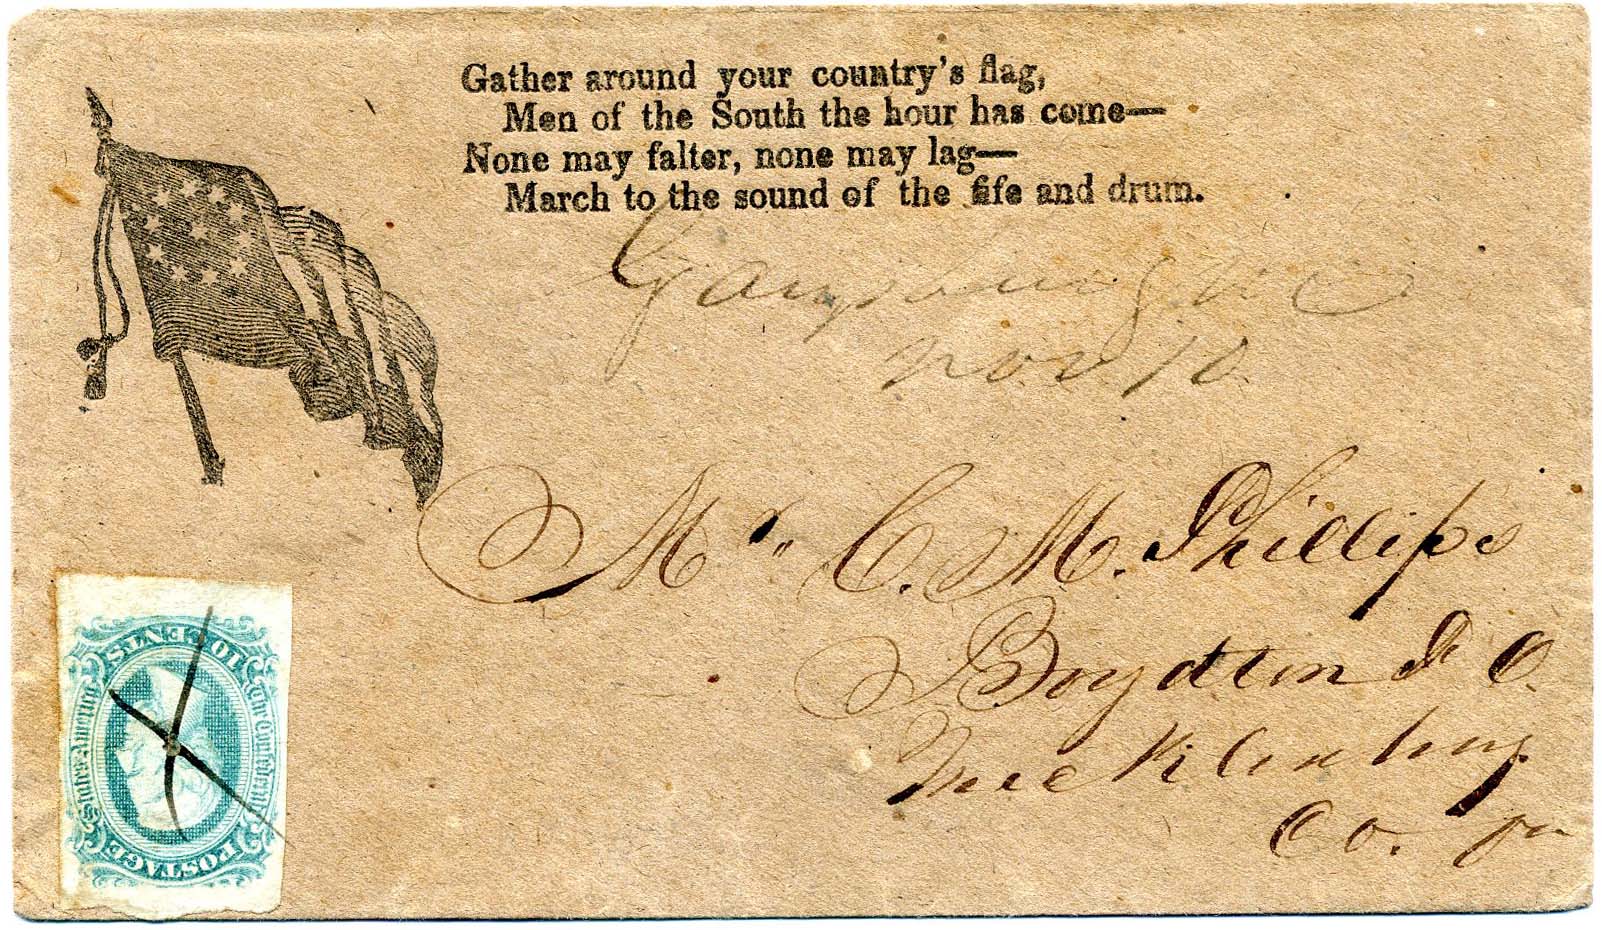 Gather around your country's flag,
Men of the South the hour has come—
None may falter, none may lag—
March to the sound of the fife and drum.
Garysburg N C
Nov 10
Mr. C. M. Phillips
Boydton P O.
Mecklenburg
Co. Va
POSTAGE
The Confederate
States of America
10 CENTS